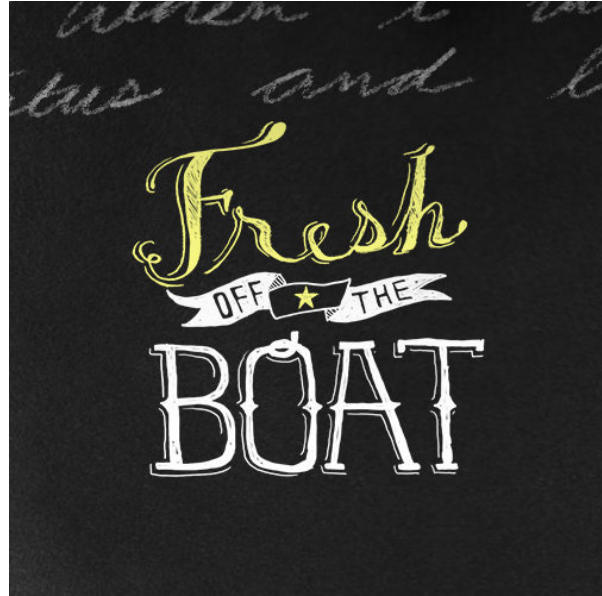 when i
and
Fresh
OFF THE
BOAT